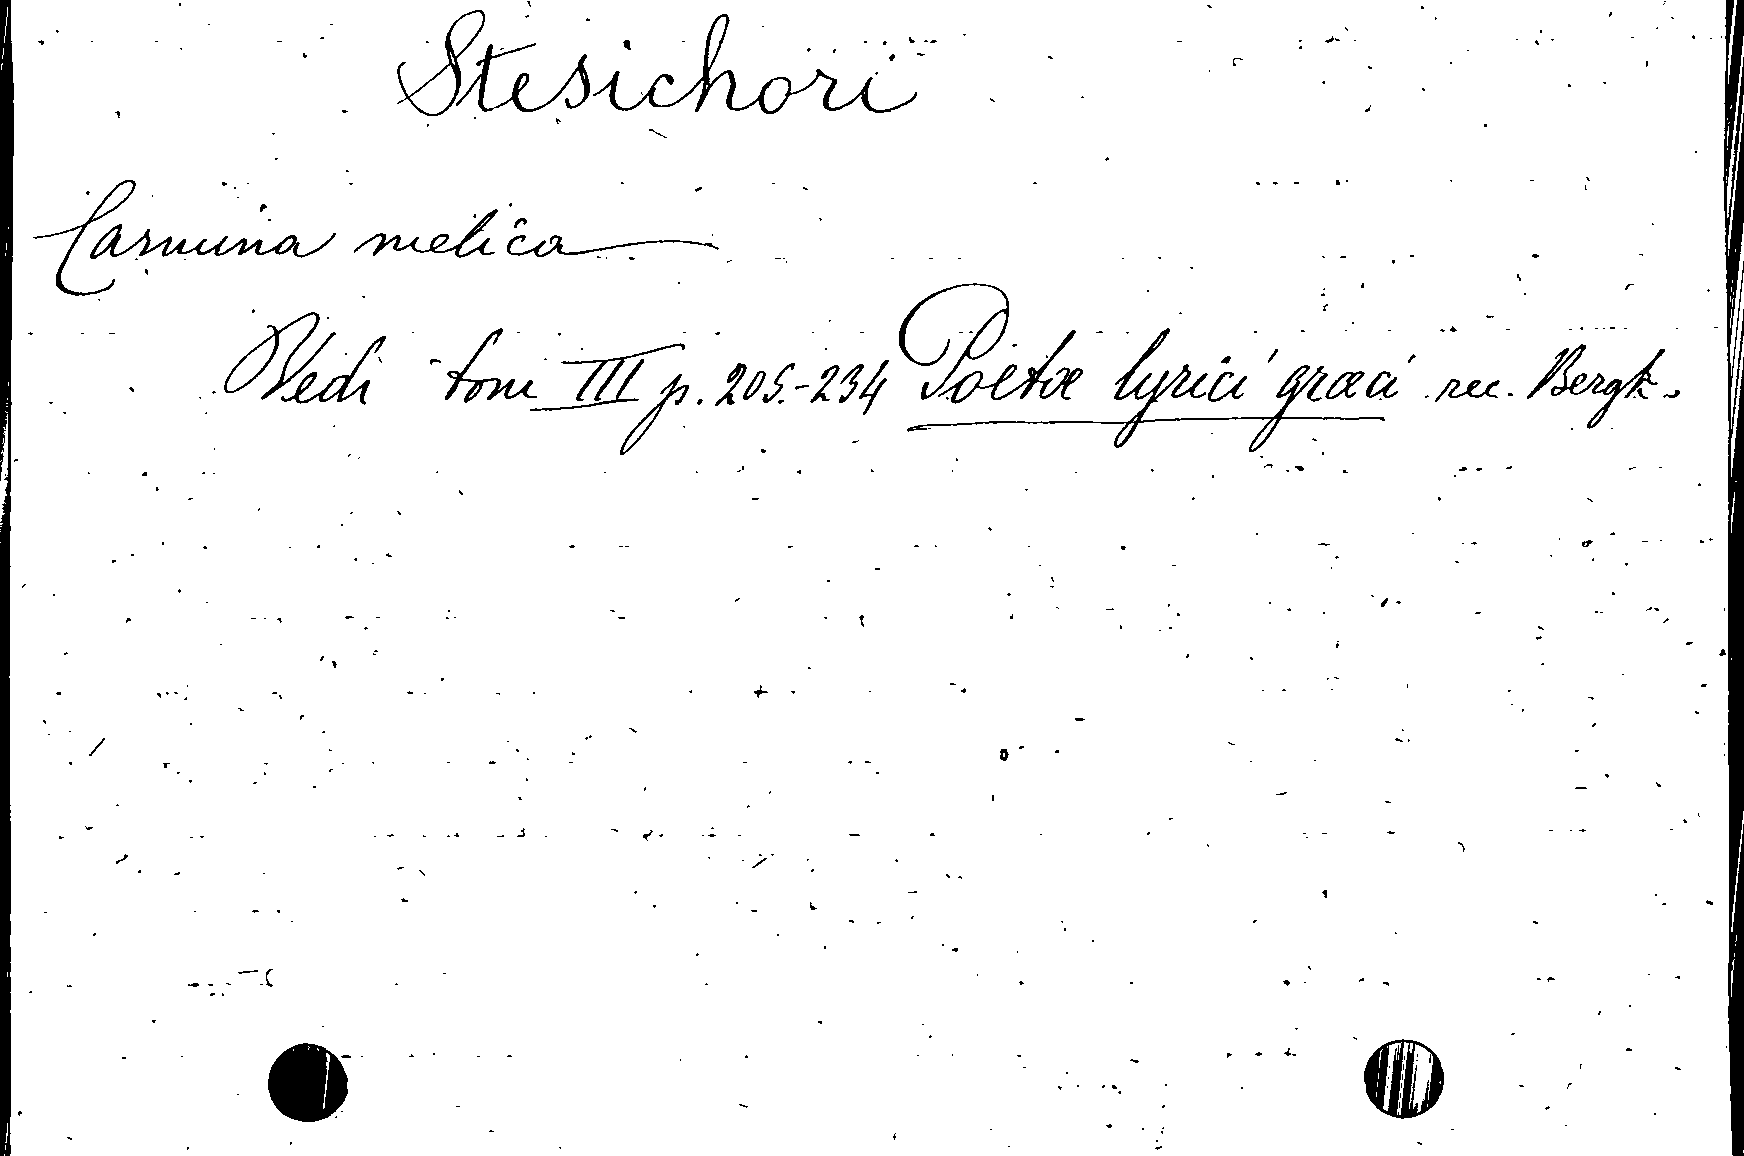 Stesichori
Carmina melica
Vedi tom III p. 205.-234 Poetæ lyrici græci rec. Bergk.